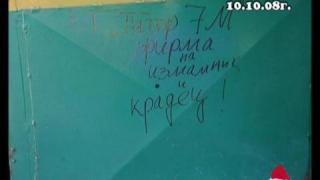 10.10.08г.
7М
фирма
на
измамник
и
крадец!